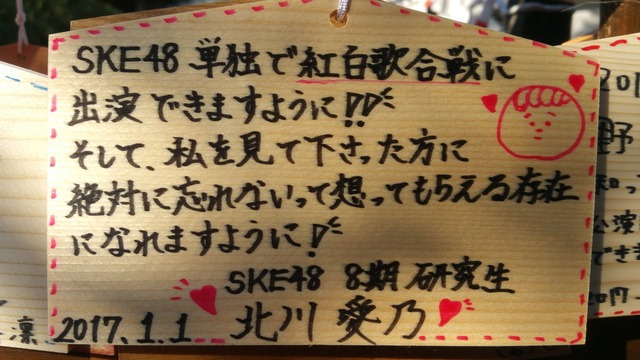 SKE48 単独で紅白歌合戦に
出演できますように!!
そして、私を見て下さった方に
絶対に忘れないって想ってもらえる存在
になれますように!
SKE48 8期 研究生
2017.1.1 北川 愛乃
凛
201
野
知っ
公演
でき
2017